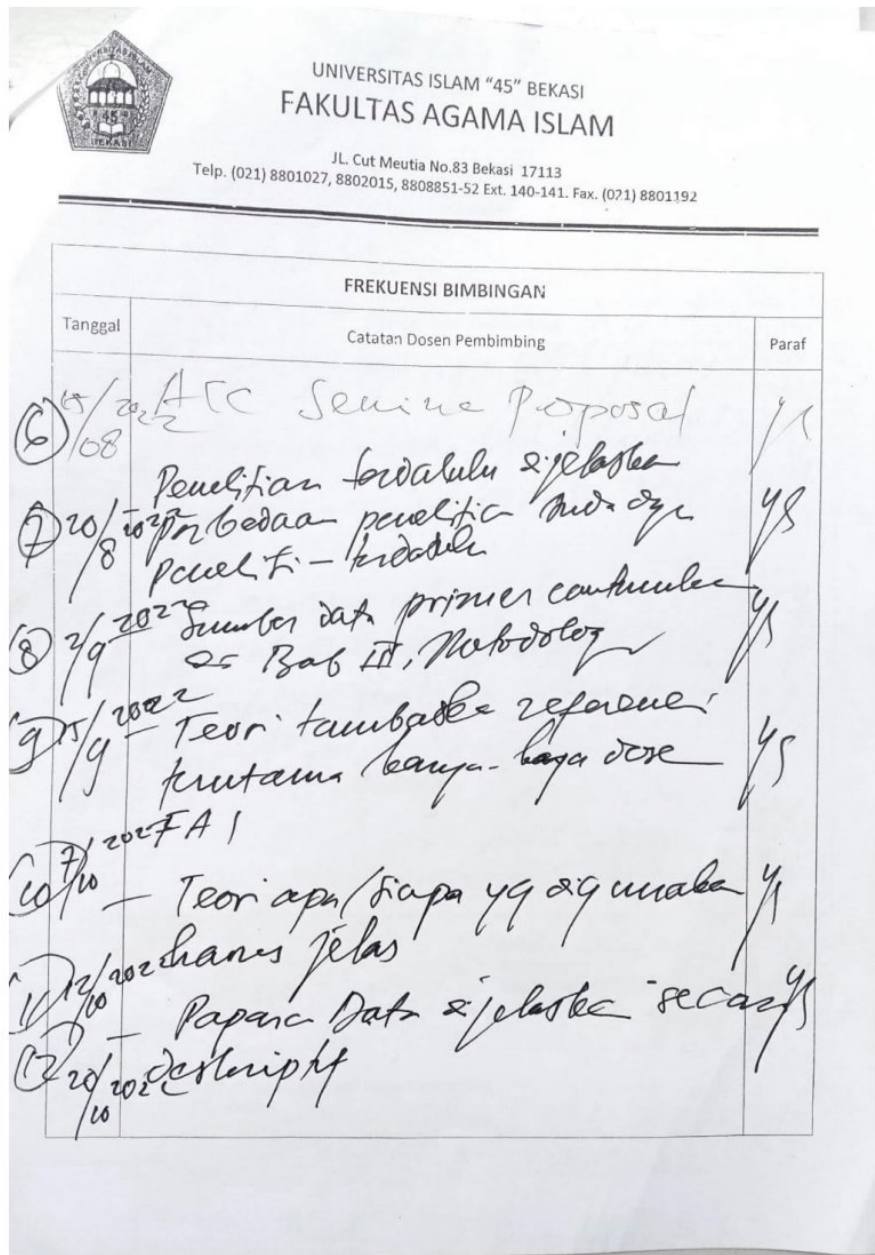 UNIVERSITAS ISLAM "45" BEKASI
FAKULTAS AGAMA ISLAM
JL. Cut Meutia No.83 Bekasi 17113
Telp. (021) 8801027, 8802015, 8808851-52 Ext. 140-141. Fax. (021) 8801192
45
BEKASI
FREKUENSI BIMBINGAN
Tanggal Catatan Dosen Pembimbing Paraf
6 15/08 2022 ACC Proposal
7 20/8 2022 - Penelitian terdahulu dijelaskan
perbedaan penelitian
peneliti - terdahulu
8 2/9 2022 - Sumber data primer cantumkan
di Bab III, Metodologi
9 15/9 2022 - Teori tambahkan referensi
terutama karya-karya dosen
FAI
10 7/10 2022
- Teori apa/siapa yg digunakan
harus jelas
11 12/10 2022
- Paparan Data dijelaskan secara
deskriptif
12 20/10 2022